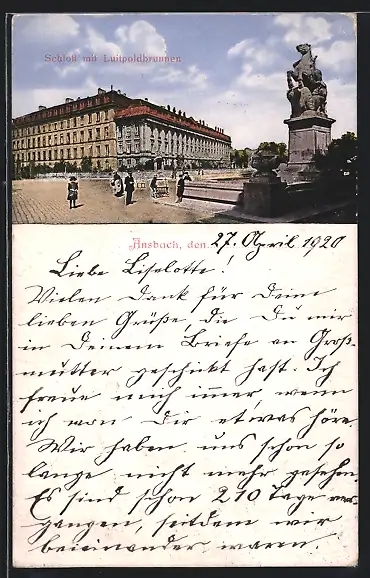 Schloß mit Luitpoldbrunnen
Ansbach, den 27. April 1920
Liebe Liselotte!
Vielen Dank für Deine
lieben Grüße, die Du mir
in Deinem Briefe an Groß-
mutter geschickt hast. Ich
freue mich immer, wenn
ich von Dir etwas höre.
Wir haben uns schon so
lange nicht mehr gesehen.
Es sind schon 210 Tage ver-
gangen, seitdem wir
beieinander waren.